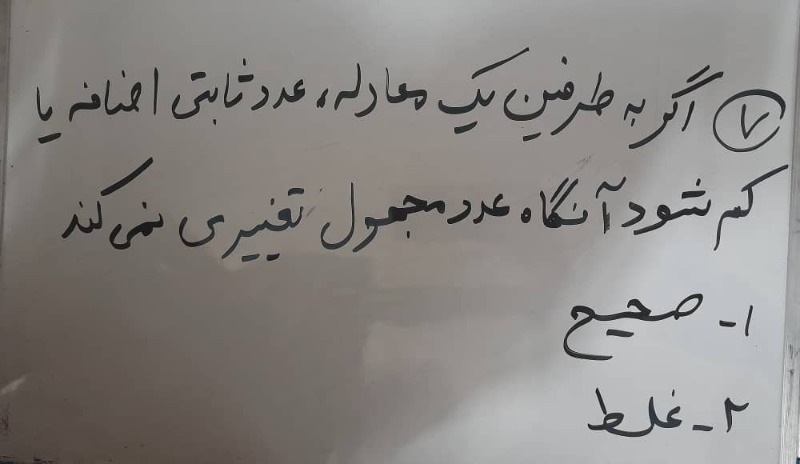 ۷ اگر به طرفین یک معادله، عدد ثابتی اضافه یا
کم شود آنگاه عدد مجهول تغییری نمی کند
۱- صحیح
۲- غلط